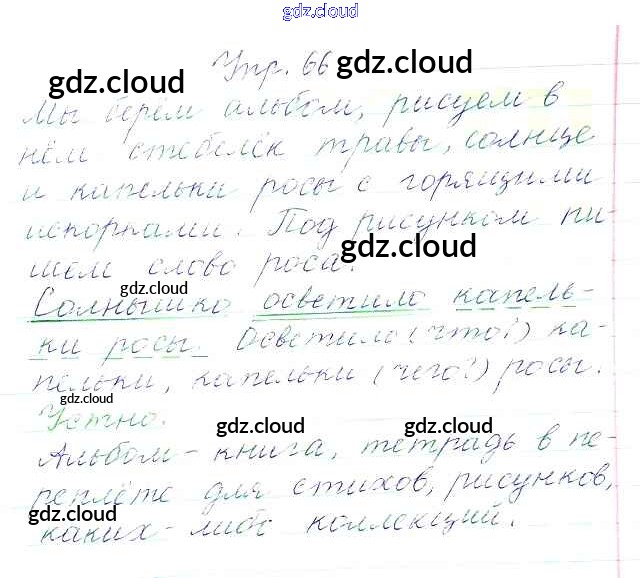 gdz.cloud
Упр. 66
gdz.cloud
gdz.cloud
Мы берём альбом, рисуем в
нём стебелёк травы, солнце
и капельки росы с горящими
искорками. Под рисунком пи-
gdz.cloud
шем слово роса.
gdz.cloud
Солнышко осветило капель-
ки росы. Осветило (что?) ка-
пельки, капельки (чего?) росы.
gdz.cloud
Устно.
gdz.cloud
gdz.cloud
Альбом - книга, тетрадь в пе-
реплёте для стихов, рисунков,
gdz.cloud
каких-либо коллекций.